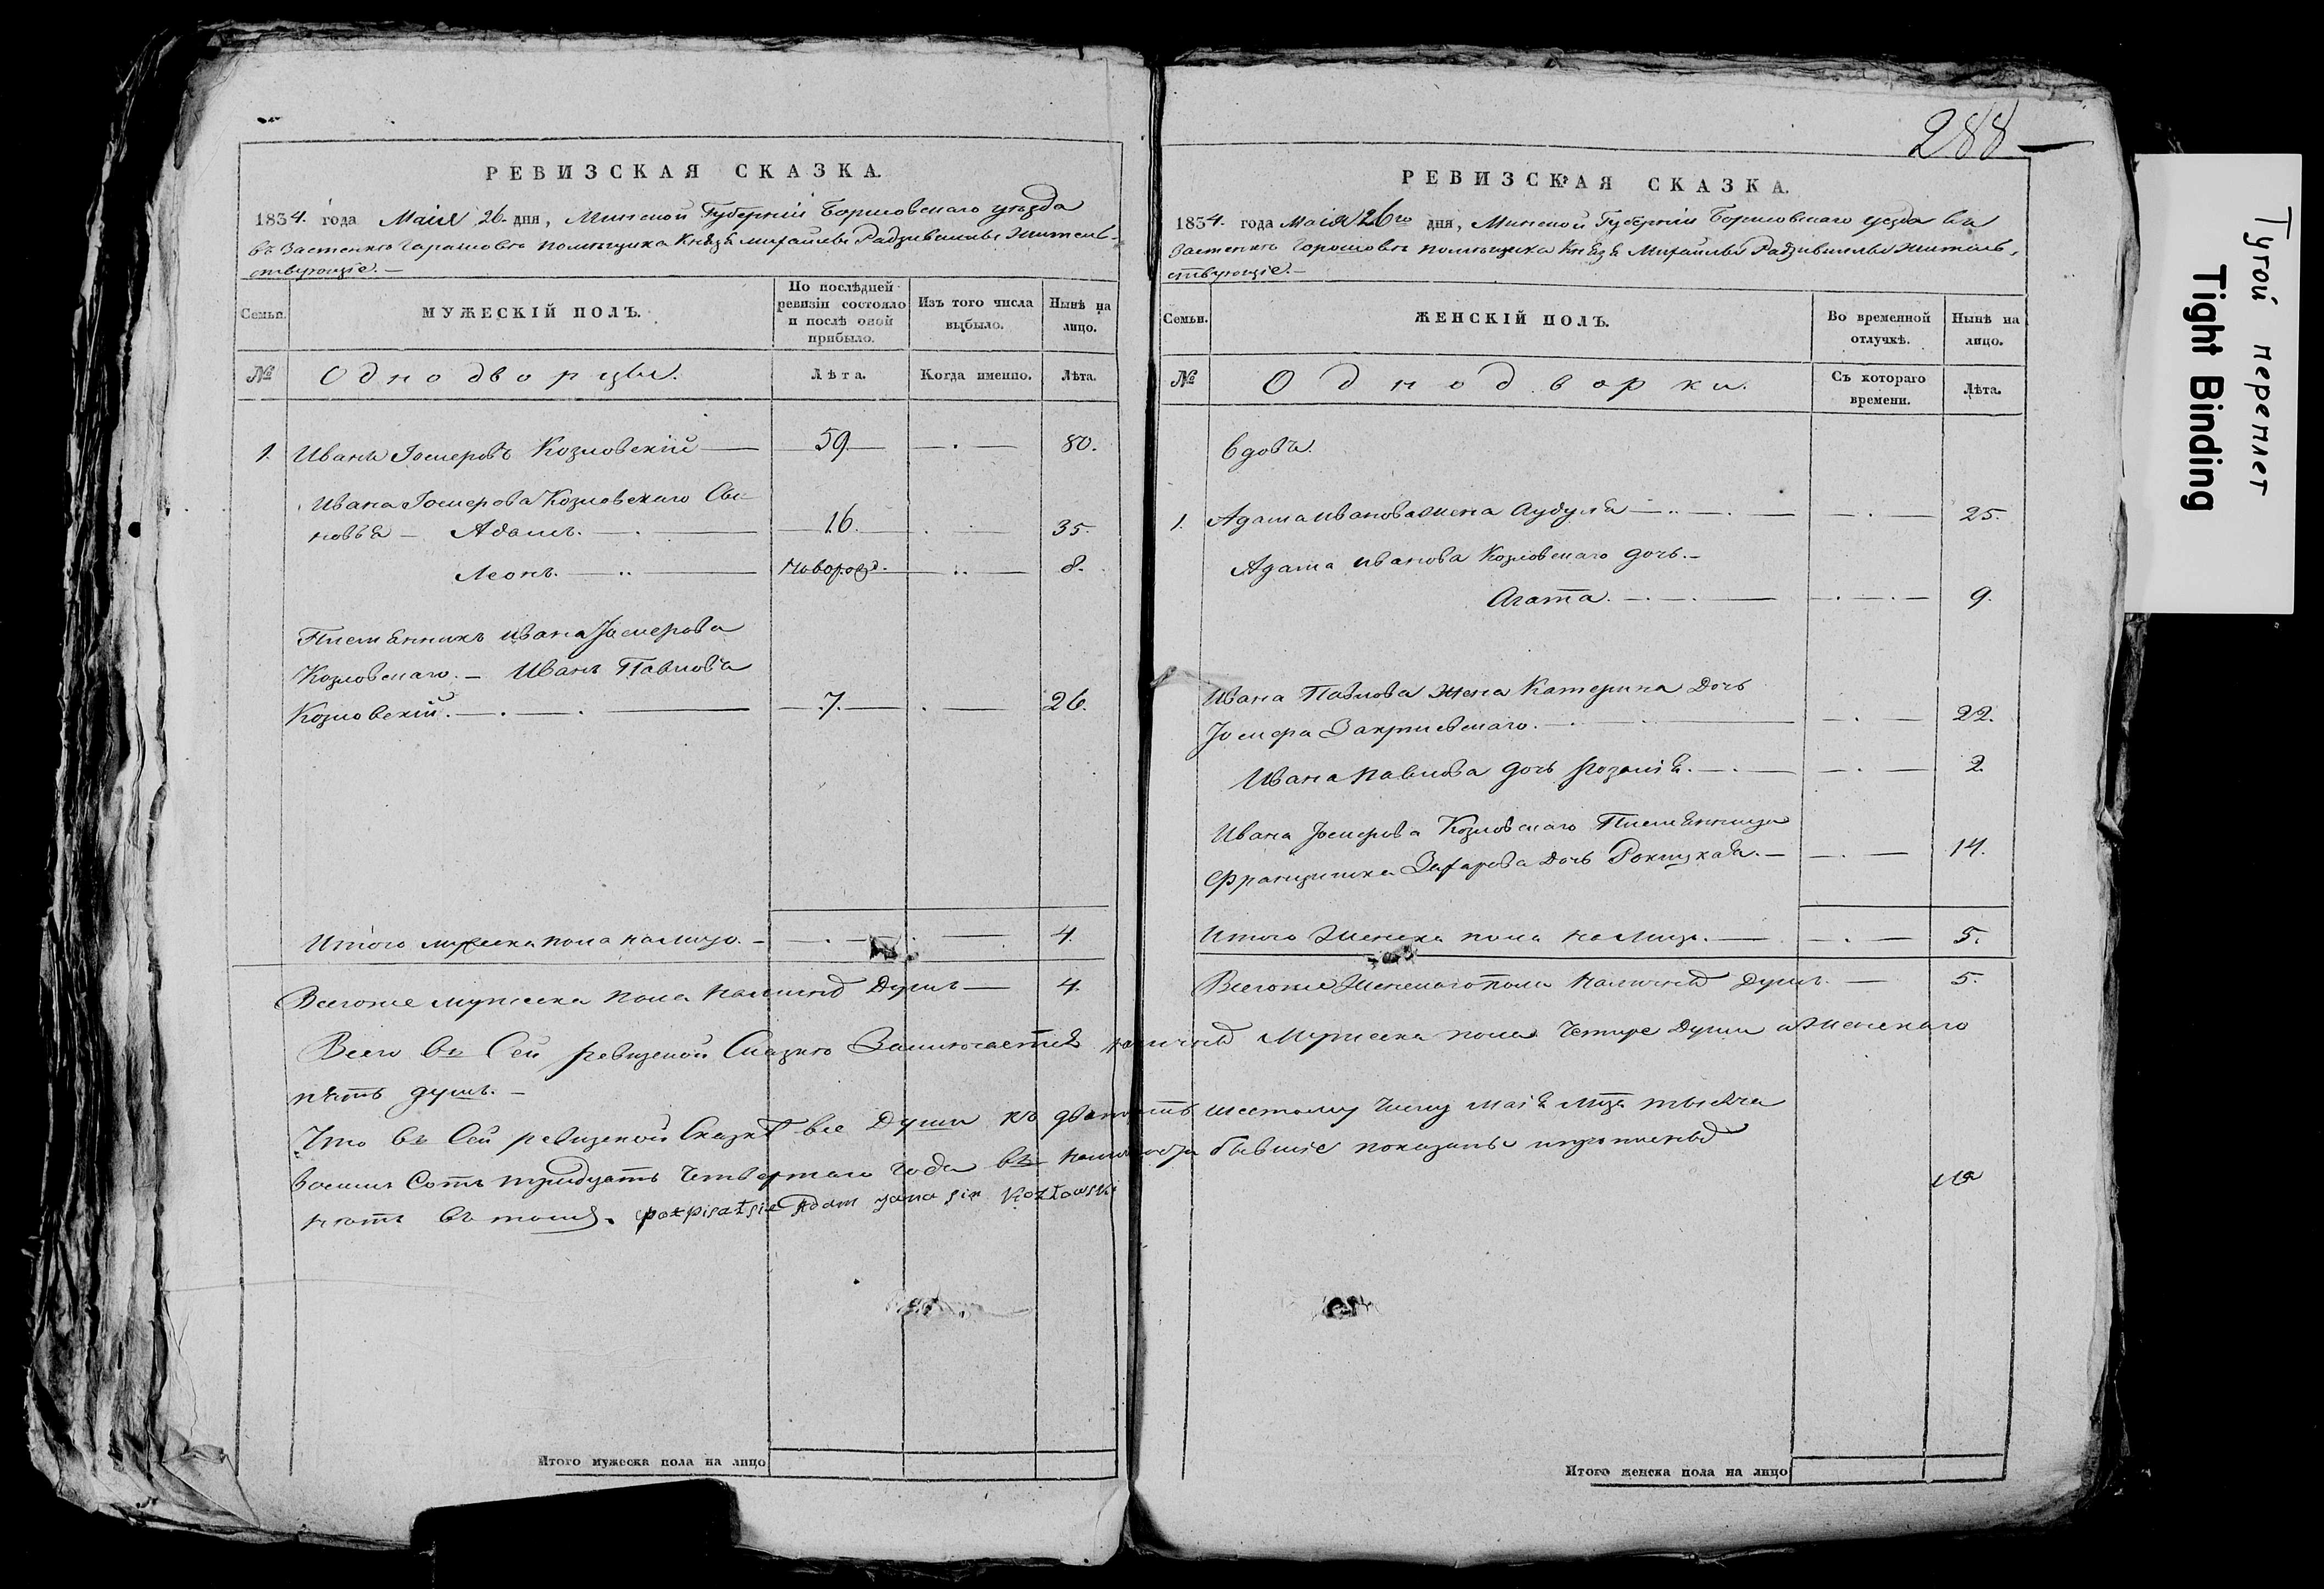 РЕВИЗСКАЯ СКАЗКА.
1834. года Маія 26. дня, Минской Губерніи Борисовскаго уѣзда
въ Застенкѣ Гарашовѣ помѣщика Князя Михайлы Радзивиллы жительст-
ствующіе. —
Семьи.
МУЖЕСКІЙ ПОЛЪ.
По послѣдней ревизіи состояло и послѣ оной прибыло.
Изъ того числа выбыло.
Нынѣ на лицо.
№
Однодворцы.
Лѣта.
Когда именно.
Лѣта.
1. Иванъ Козловскій — 59. — . — 80.
Ивана Козловскаго Сы-
новья — Адамъ. — . — 16. . — 35.
Леонъ. — .. — Новорожд. — .. — 8.
Племянникъ Ивана
Козловскаго. — Иванъ Павловъ
Козловскій. — . — . — 7. — . — 26.
Итого мужеска пола на лицо. — — . — . — 4.
Всегоже мужеска пола Душъ — 4.
288
РЕВИЗСКАЯ СКАЗКА.
1834. года Маія 26го дня, Минской Губерніи Борисовскаго уезда въ
Застенкѣ Горошовѣ помѣщика Князя Михайлы Радзивиллы жительст-
ствующіе. —
Семьи.
ЖЕНСКІЙ ПОЛЪ.
Во временной отлучкѣ.
Нынѣ на лицо.
№
Однодворки.
Съ котораго времени.
Лѣта.
Вдовъ.
1. Адама Иванова жена — .. — . — — . — 25.
Адама Иванова Козловскаго дочь. —
Агата. — . — . — — . — . — 9.
Ивана Павлова жена Катерина Дочь
— . — — . — 22.
Ивана Павлова дочь Розалія. — . — — . — 2.
Ивана Козловскаго Племянница
Францишка Дочь Рокицкая. — — . — 14.
Итого Женска пола на Лицо. — — . — 5.
Всегоже Женскаго пола Душъ. — 5.
Всего въ Сей ревизской Сказкѣ Заключается Мужеска пола Четыре Души и Женскаго
пять душъ. —
Что въ Сей ревизской Сказкѣ все Души къ двадцать шестому Числу Маія Мца тысяча
восемь Сотъ тридцать Четвертаго Года въ бывшіе показаны
въ томъ. potpisałsie Adam Jana sin Kozłowski
Итого мужеска пола на лицо
Итого женска пола на лицо
Тугой переплет
Tight Binding